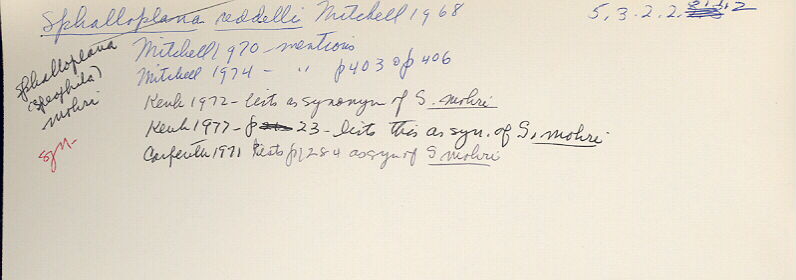 Sphalloplana reddelli Mitchell 1968 5.3.2.2. 2
Sphalloplana
(Speophila)
mohri
syn.
Mitchell 1970 - mentions
Mitchell 1974 - " p403 p406
Kenk 1972 - lists as synonym of S. mohri
Kenk 1977 - p 23 - lists this as syn. of S. mohri
Carpenter 1971 lists p1284 as syn of S mohri